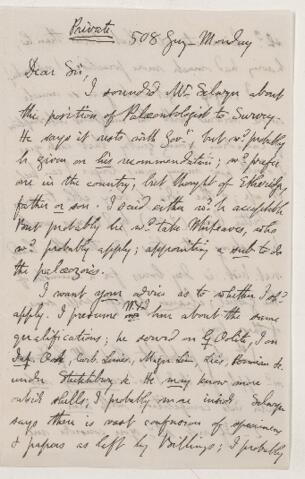 Private 508 Guy - Monday
Dear Sir,
I sounded Mr Selwyn about
the position of Palæontologist to Survey.
He says it rests with Govt, but wd probably
be given on his recommendation; wd prefer
one in the country, but thought of Etheridge,
father or son. I said either wd be acceptable
But probably he wd take Whiteaves, who
wd probably apply; appointing a sub to do
the palæozoics.
I want your advice as to whether I shd
apply. I presume and him about the same
qualifications; he served on G. Oolite, I on
Inf. Ool, Carb. Limes, Magn Lim, Lias, Permian &c.
under He may know more
shells; I probably more Selwyn
says there is vast confusion of specimens
& papers as left by Billings; I probably